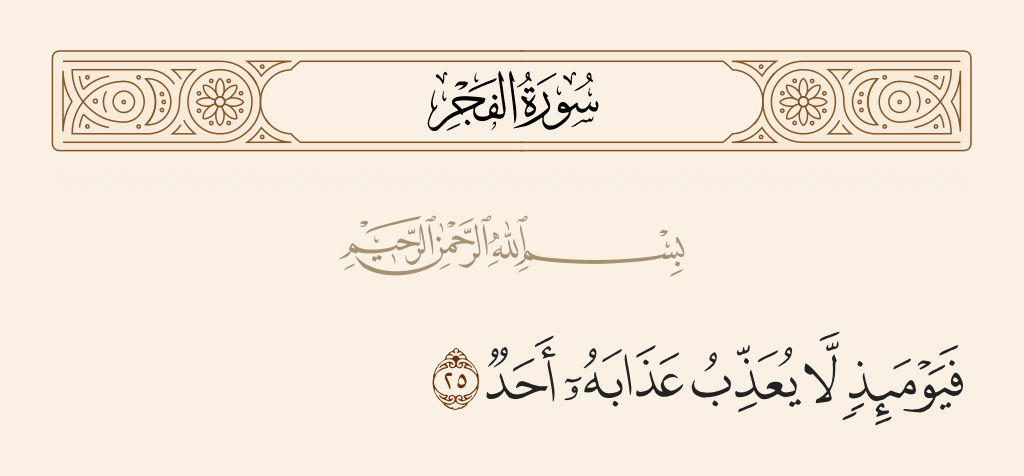 سُورَةُ الفَجْرِ
بِسْمِ ٱللَّهِ ٱلرَّحْمَٰنِ ٱلرَّحِيمِ
فَيَوْمَئِذٍ لَّا يُعَذِّبُ عَذَابَهُۥٓ أَحَدٌ ٢٥